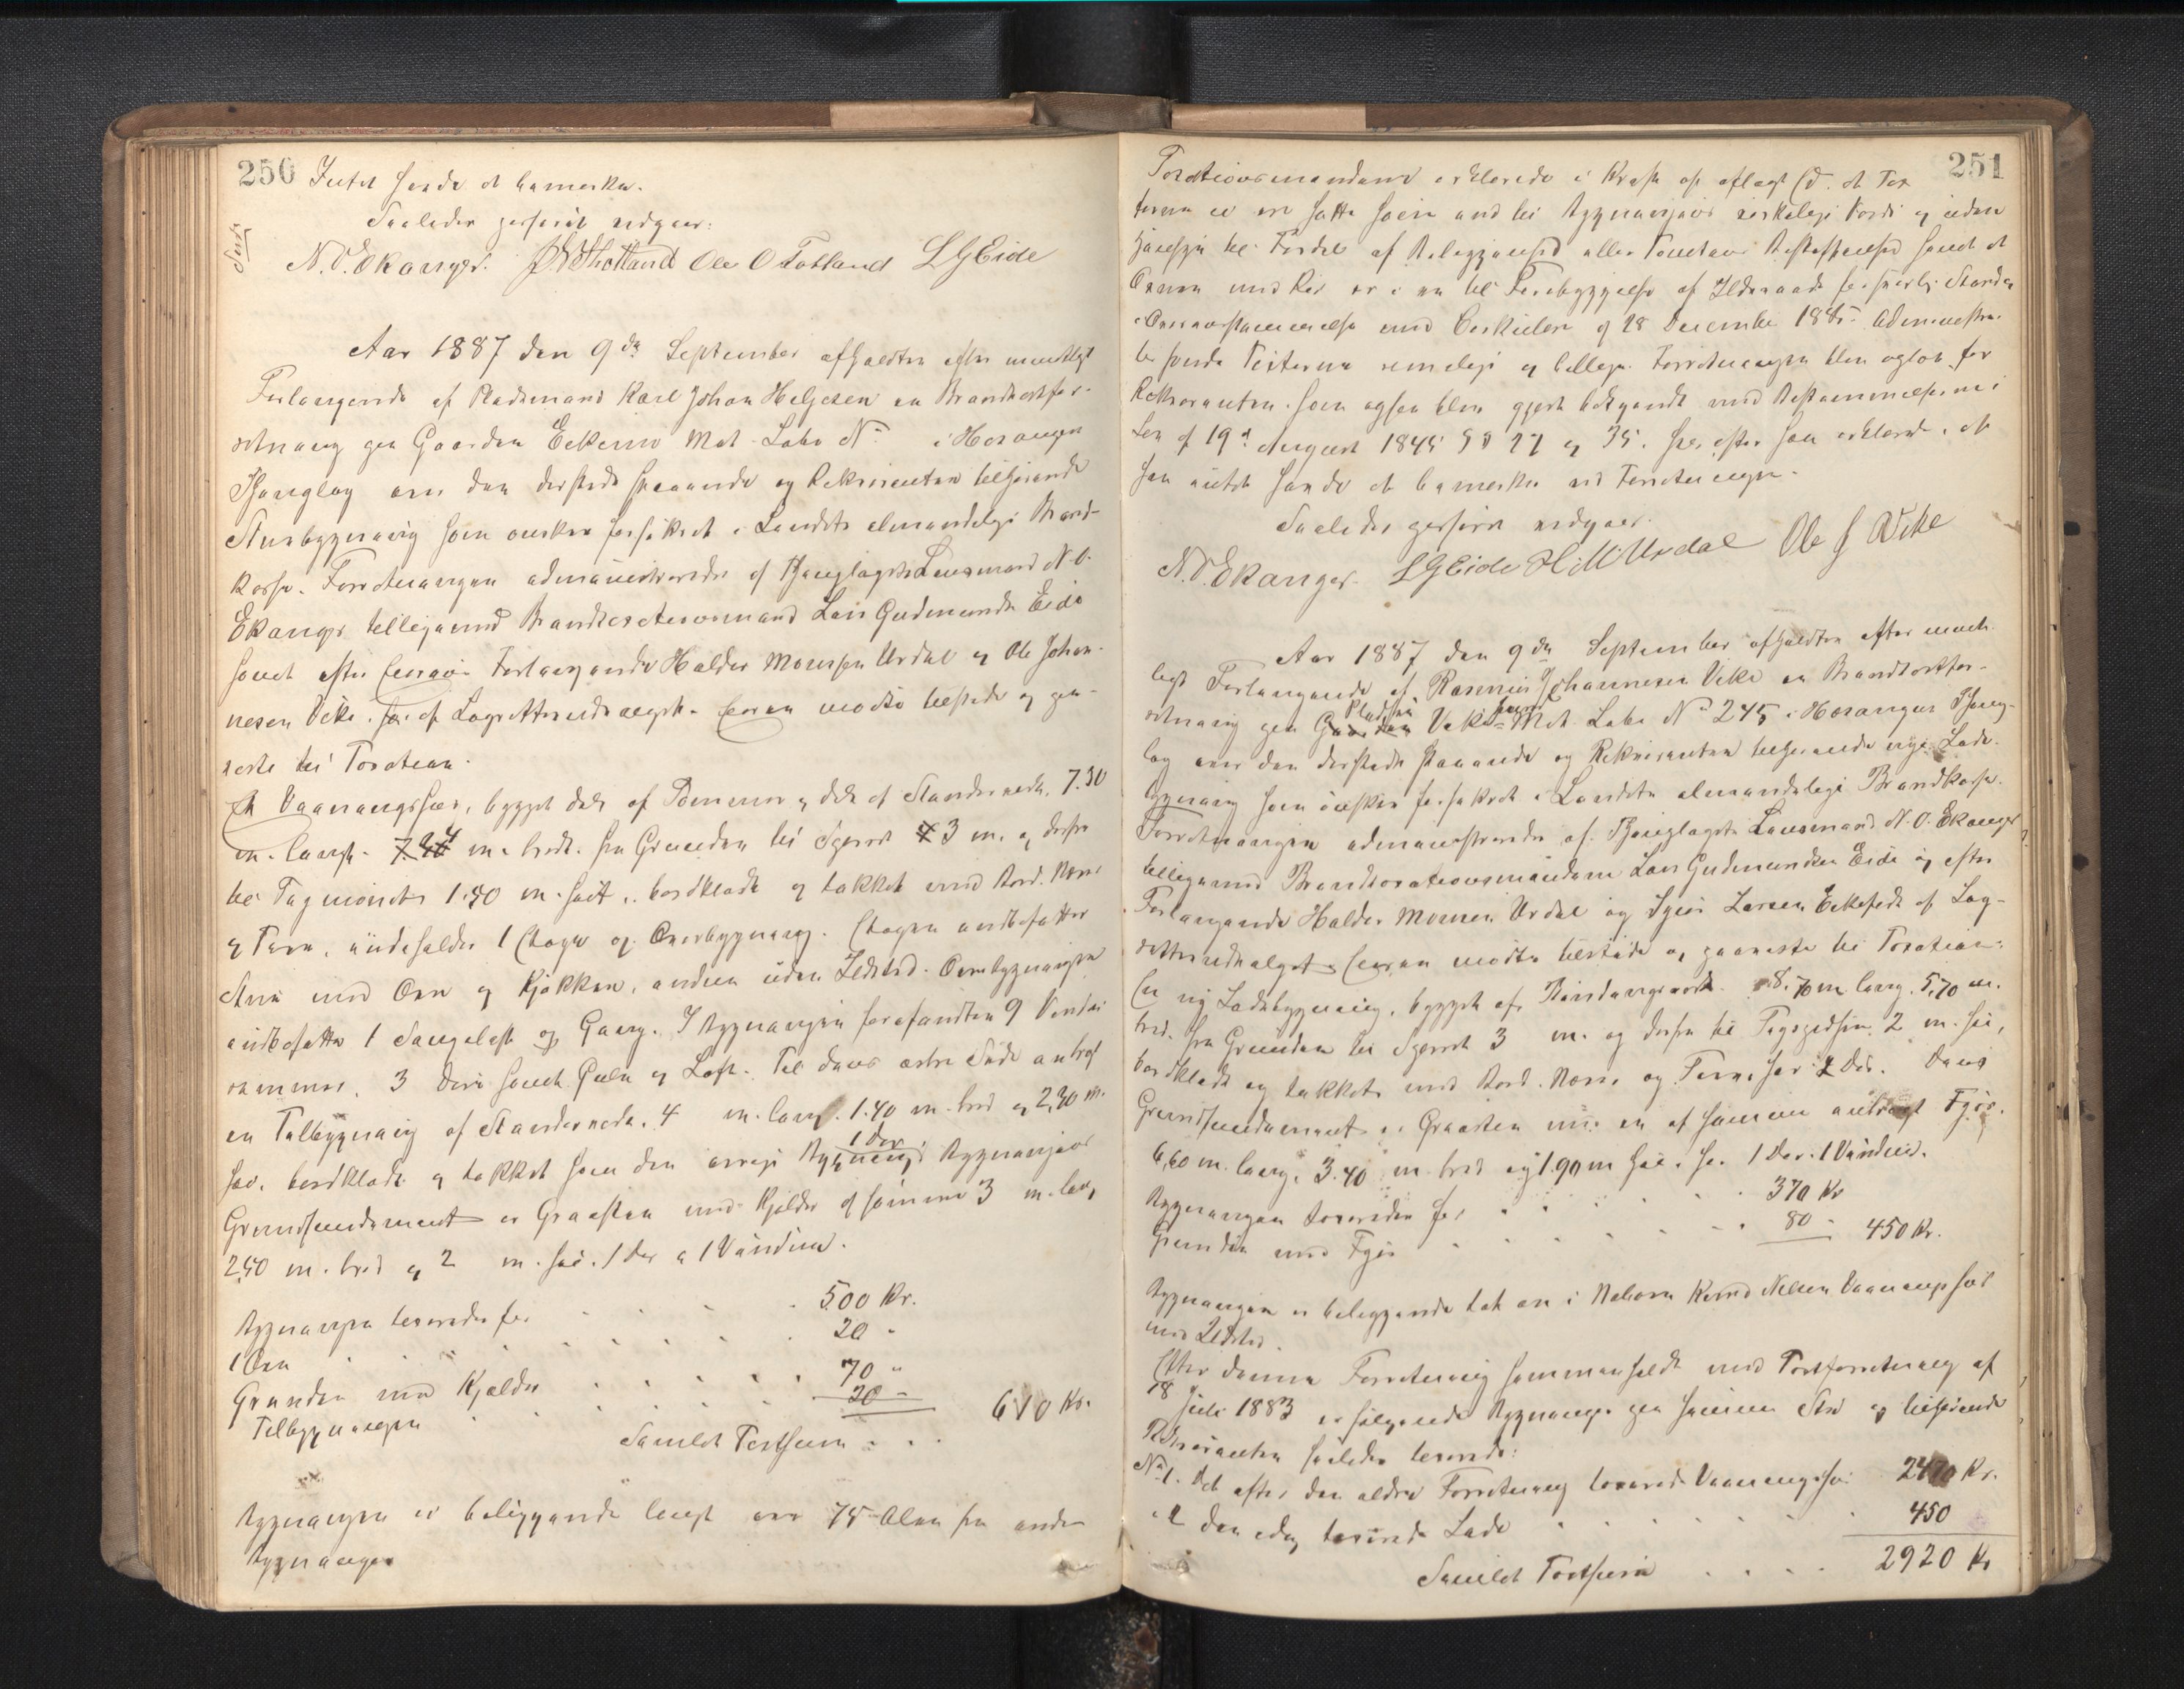 250
Intet havde at bemærke.
Saaledes passeret vedgaaes:
N. O. Ekanger. Ole O Tobland LGEide
Aar 1887 den 9de September afholdtes efter mundtligt
Forlangende af Pladsmand Karl Johan Helgesen en Brandtaxtfor-
retning paa Gaarden Eekenes Mat. Løbe No i Hosanger
Thinglag over den dersteds staaende og Rekvirenten tilhørende
Stuebygning som ønskes forsikret i Landets almindelige Brand-
kasse. Forretningen administreredes af Thinglagets Lensmand N. O.
Ekanger tilligemed Brandtaxationsmand Lars Gudmunds. Eide
samt efter Forlangende Haldor Monsen Urdal og Ole Johan-
nesen Veke. af Lagrettesudvalget. mødte tilstede og gav-
neste til Taxation.
Et Vaaningshus, bygget dels af Tømmer og dels af Standerverk, 7.30
m. langt. m. bredt. fra Grunden til Sperret 3 m. og derfra
til Tagmønet 1.50 m. høit, bordklædt og tækket med Bord. Næver
og Tørv, indeholder 1 Etage og Overbygning. Etagen indbefatter
Stue med Ovn og Kjøkken, anden uden Ildsted. Overbygningen
indbefatter 1 Sengeloft og Gang. I Bygningen forefandtes 9 Vinduer
rammer, 3 Døre samt Gulv og Loft. Til dens østre Side anbragt
en Tilbygning af Standerverk. 4 m. lang. 1.40 m. bred og 2,30 m.
høi, bordklædt og tækket som den øvrige Bygning, 1 Dør. Bygningens
Grundfundament er Graasten med Kjelder af samme 3 m. lang
2,50 m. bred og 2 m. høi. 1 Dør og 1 Vindue.
Bygningen taxeredes for . . . . 500 Kr.
1 Ovn . . . . . . 20 "
Grunden med Kjælder . . . . . 70 "
Tilbygningen . . . . . 20 "
Samlet Taxtsum . . . 610 Kr.
Bygningen er beliggende langt over 75 Alen fra andre
Bygninger
251
Taxationsmændene erklærede i Kraft af aflagt Ed, at Tax
terne er ansatte som ved til Bygningens virkelige Værdi og uden
Hensyn til Fordel af Beliggenhed eller Tomtens Beskaffenhed samt at
Ovnen med Rør er i til Forebyggelse af Ildsvaade forsvarlig Stand
i Overensstemmelse med Cirkulær af 18 December 1885. Administra-
tor fandt Taxterne rimelige og billige. Forretningen blev oplæst for
Rekvirenten. som ogsaa blev gjort bekjendt med Bestemmelserne i
Lov af 19de August 1845 §§ 27 og 35. hvorefter han erklærede, at
han intet havde at bemærke ved Forretningen.
Saaledes passeret vedgaaes.
N. O. Ekanger. LGEide H. M. Urdal Ole J Veke
Aar 1887 den 9de September afholdtes efter mundt-
ligt Forlangende af Rasmus Johannesen Veke en Brandtaxtfor-
retning paa Pladsen Veke Mat. Løbe No 245 i Hosanger Thing-
lag over den dersteds staaende og Rekvirenten tilhørende nye Lade-
bygning som ønskes forsikret i Landets almindelige Brandkasse.
Forretningen administreredes af Thinglagets Lensmand N. O. Ekanger
tilligemed Brandtaxationsmændene Lars Gudmundsen Eide og efter
Forlangende Haldor Monsen Urdal og Larsen Eekefedt af Lag-
rettesudvalget. mødte tilstede og gaaneste til Taxation:
En ny Ladebygning, bygget af Bindingsverk 8.70 m lang. 5,70 m.
bred. fra Grunden til Sperret 3 m. og derfra til Tagspidsen 2 m. høi,
bordklædt og tækket med Bord. Næver og Tørv, har 2 Dør. Dens
Grundfundament er Graasten med en af samme anbragt Fjøs.
6,60 m. lang, 3.40 m. bred og 1.90 m høi. har 1 Dør. 1 Vindue.
Bygningen taxeredes for . . . . . 370 Kr
Grunden med Fjøs . . . . . 80 " 450 Kr.
Bygningen er beliggende tæt ved i Naboen Knud Nilsen Vaaningshus
med Ildsted.
Efter denne Forretning sammenholdt med Taxtforretning af
18 Juli 1883 er følgende Bygninger paa samme Sted og tilhørende
Rekvirenten saaledes taxerede:
No 1. Det efter den ældre Forretning taxerede Vaaningshus 2470 Kr.
" 2 den idag taxerede Lade . . . . . 450
Samlet Taxtsum . . . . 2920 Kr